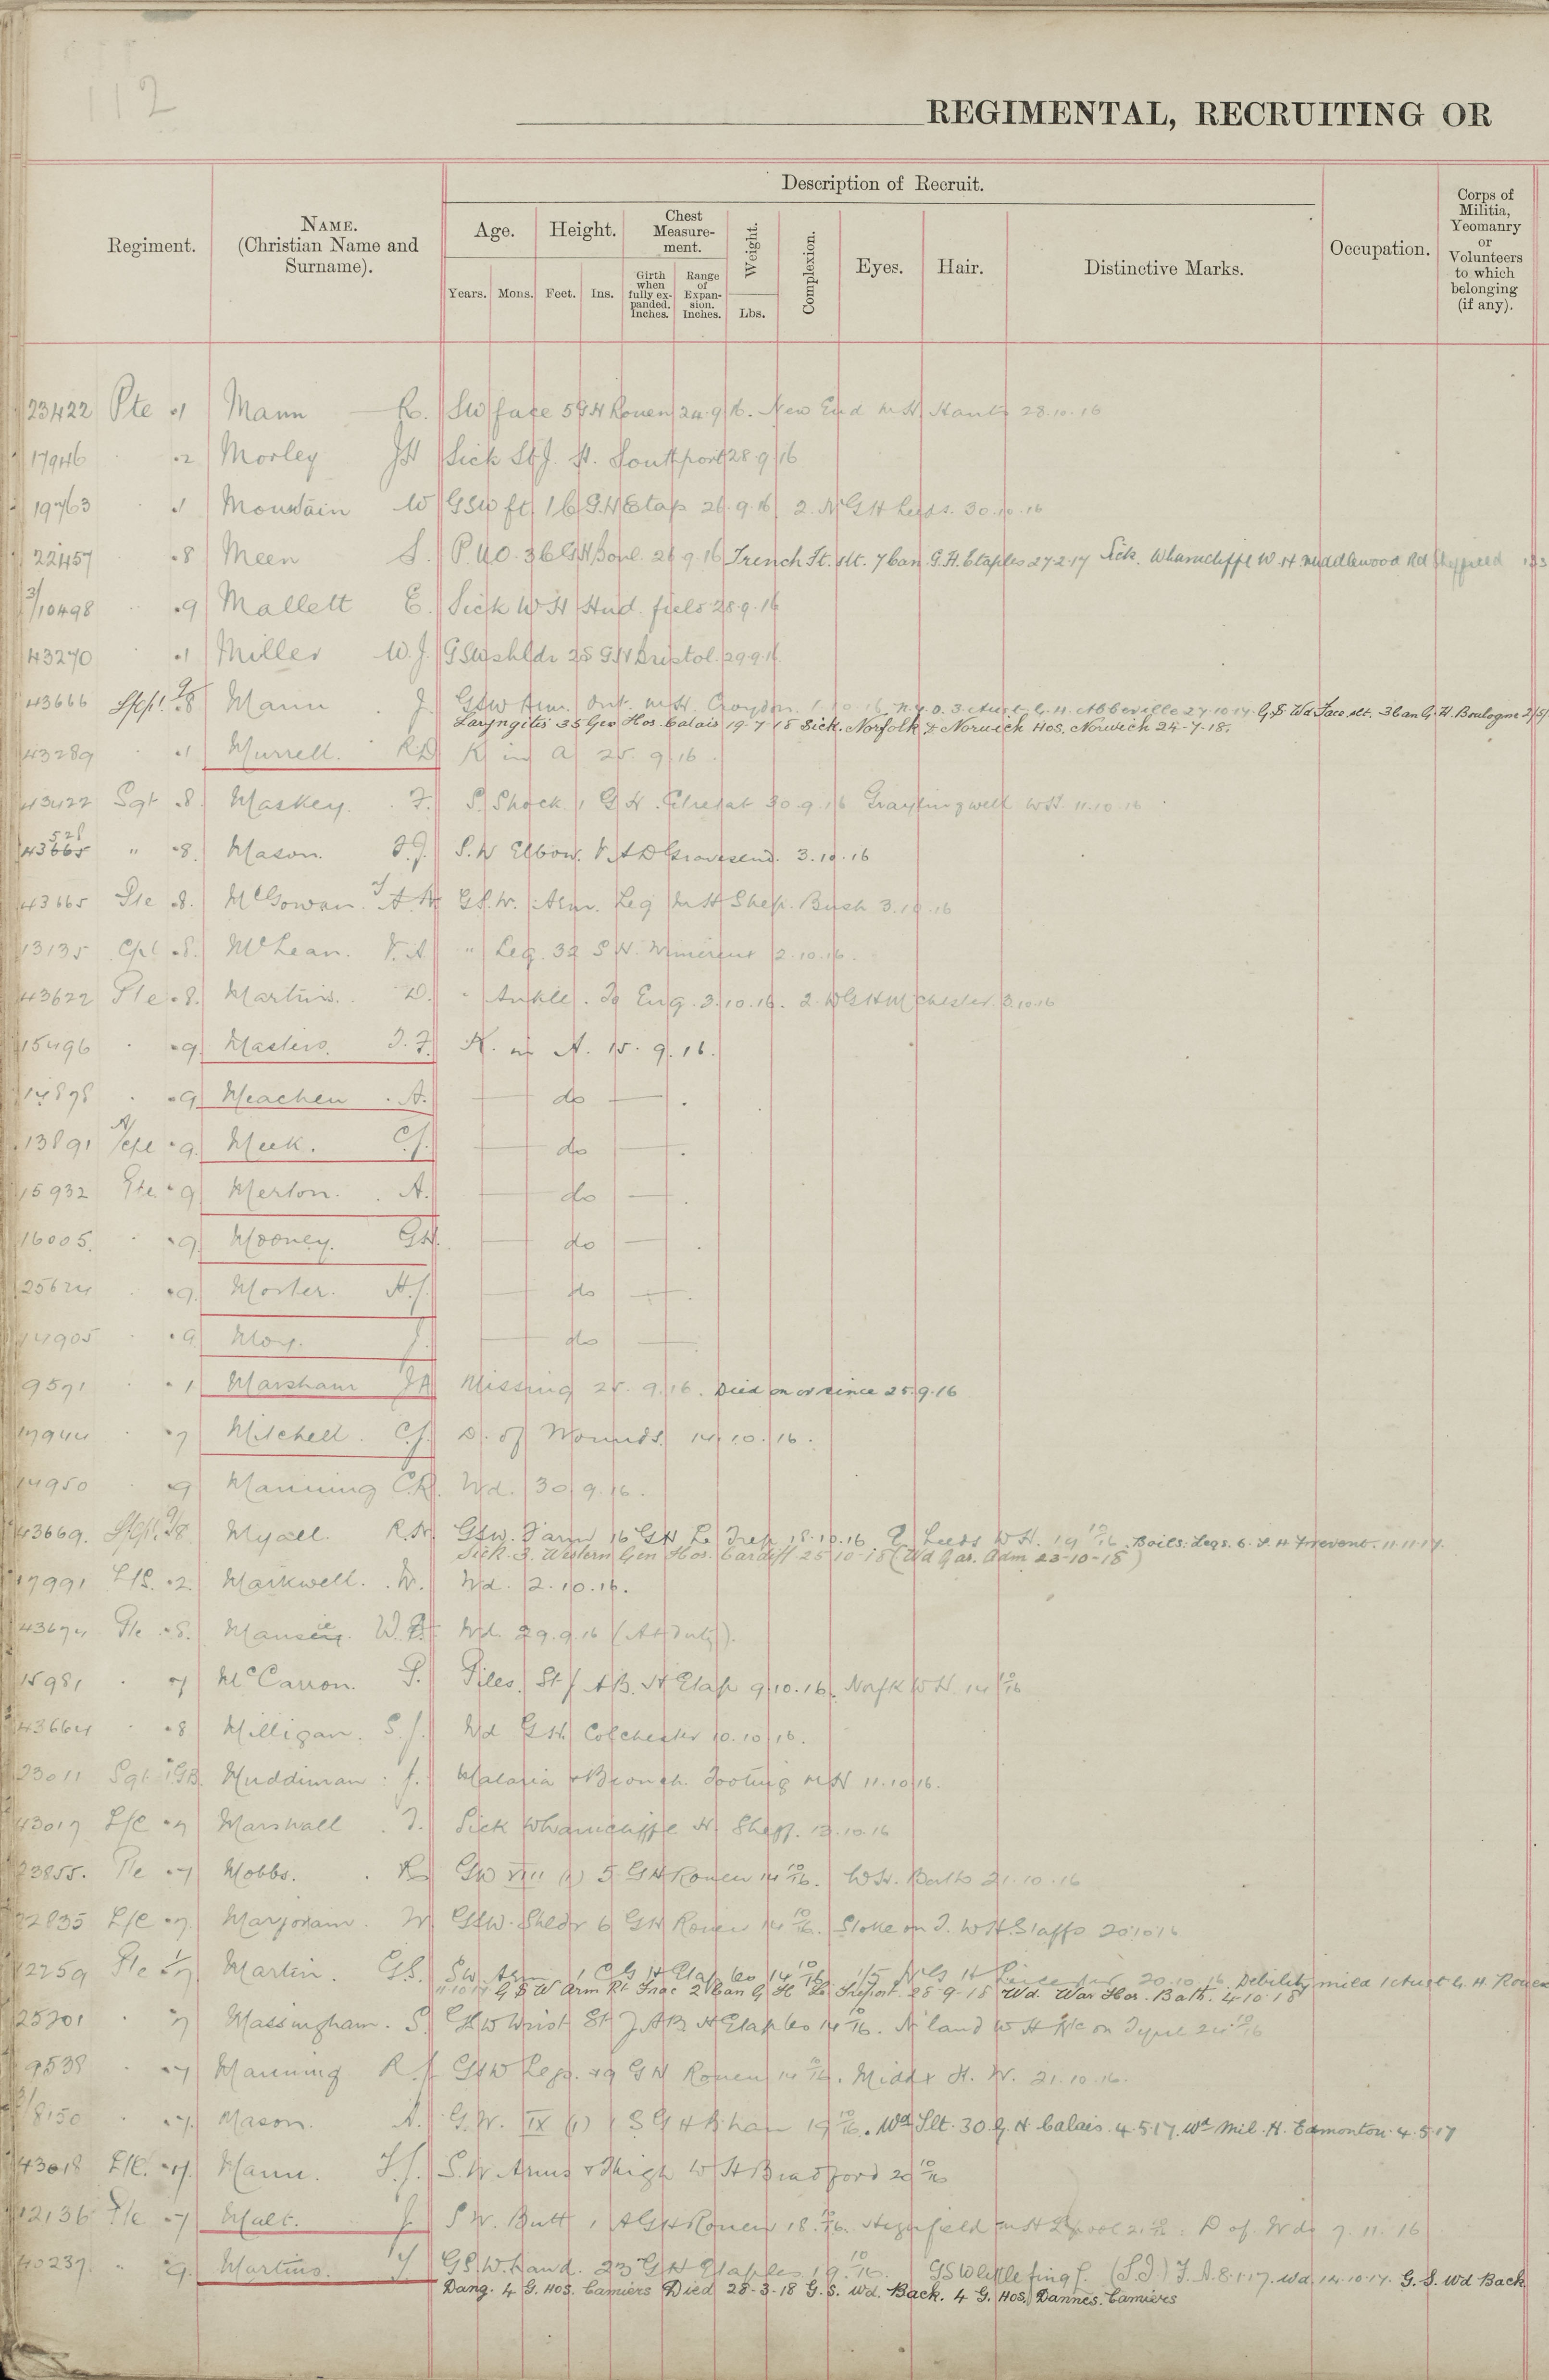 112
REGIMENTAL, RECRUITING OR
Regiment.
NAME.
(Christian Name and
Surname).
Description of Recruit.
Age.
Height.
Chest
Measure-
ment.
Weight.
Complexion.
Eyes.
Hair.
Distinctive Marks.
Occupation.
Corps of
Militia,
Yeomanry
or
Volunteers
to which
belonging
(if any).
Years.
Mons.
Feet.
Ins.
Girth
when
fully ex-
panded.
Inches.
Range
of
Expan-
sion.
Inches.
Lbs.
23422 Pte .1 Mann R. SW face 5 GH Rouen 24.9.16. New End MH Hants 28.10.16
17946 .2 Morley JH Sick St J. H. Southport 28.9.16
19763 .1 Mountain W GSW ft 16 GH Etap 26.9.16 2. N GH Leeds. 30.10.16
22457 .8 Meen S. P.U.O. 36 GH Boul. 26.9.16 Trench Ft. slt. 7 Can. G.H. Etaples 27-2-17 Sick. Wharncliffe W.H. Middlewood Rd Sheffield
3/10498 .9 Mallett E. Sick WH Hud. field 28.9.16
43270 .1 Miller W.J. GSW shldr 2S GH Bristol. 29.9.16
43666 .8 Mann J. GSW Arm. Ont. MH. Croydon. 1.10.16 N.Y.D. 3 Aust. G.H. Abbeville 27.10.17. G.S. Wd Face slt. 3 Can G.H. Boulogne
Laryngitis 35 Gen Hos. Calais 19-7-18 Sick. Norfolk & Norwich Hos. Norwich 24-7-18.
43289 .1 Murrell. R.D K in A 25.9.16.
43422 Sgt .8. Maskey. F. S. Shock. 1 GH. Etretat 30.9.16 Graylingwell WH. 11.10.16
528
43665 " .8. Mason. J.J. S.W Elbow. V.A.D Gravesend. 3.10.16
43665 Pte .8. McGowan. G.S.W. Arm. Leg MH Shep. Bush 3.10.16
13135 Cpl .8. McLean. V.A. " Leg. 32 S.H. Wimereux 2.10.16.
43622 Pte .8. Martins. D. " Ankle. To Eng. 3.10.16. 2. WGH Mchester 3.10.16
15496 .9. Masters. J.F. K. in A. 15.9.16.
14898 .9 Meachen. A. do
13891 A/Cpl .9. Meek. C.J. do
15932 Pte .9 Merton. A. do
16005. .9. Mooney. GH. do
25624 .9. Morter. H.J. do
14905 .9 Moy. J. do
9591 .1 Marsham JA Missing 25.9.16. Died on or since 25.9.16
17944 .7 Mitchell. C.J. D. of Wounds. 14.10.16.
14950 .9 Manning C.R. Wd. 30.9.16.
43669. .8. Myall. R.H. GSW. F'arm 16 GH Le Trep. 18.10.16. Leeds WH. 19 10/16. Boils. Legs. 6. S.H. Frevent. 11.11.17.
Sick. 3. Western Gen Hos. Cardiff 25-10-18 (Wd Gas. Adm 23-10-18)
17991 L/C. .2. Markwell. W. Wd. 2.10.16.
43674 Pte .8. W. Wd 29.9.16 (At Duty).
15981 .7 McCarron. P. Piles. St J AB. H Etap 9.10.16. Norfk WH. 14 10/16
43664 .8 Milligan. S.J. Wd GH Colchester 10.10.16.
23011 Sgt 1GB. Muddiman. J. Malaria & Bronch. Tooting MH 11.10.16.
43017 L/C .7 Marshall. T. Sick Wharncliffe H. Sheff. 13.10.16
23855. Pte .7 Mobbs. R GW VIII (1) 5 GH Rouen 14 10/16. WH. Bath 21.10.16
22835 L/C .7. Marjoram. W. GSW. Shldr 6 GH Rouen 14 10/16. Stoke on T. WH Staffs 20.10.16
12259 Pte 1/7 Martin. G.S. SW. Arm 1 C G H Etaples 14 10/16 1/5 N G H Leicester 20.10.16. Debility mild 1 Aust G.H. Rouen
11.10.17 G S W Arm Rt Frac 2 Can G H Le Treport. 28-9-18 Wd. War Hos. Bath. 4-10-18
25201 .7 Massingham. S. GSW Wrist St J AB H Etaples 14 10/16. N'land WH N/c on Tyne 24 10/16
9538 .7 Manning R.J. GSW Legs. & 9 GH Rouen 14 10/16. Middx H. W. 21.10.16.
3/8150 .7. Mason. A. G.W. IX (1) 1 S G H B'ham 19 10/16. Wd Slt. 30 G.H. Calais. 4.5.17. Wd Mil. H. Edmonton. 4.5.17
43018 L/C. .7. Mann. S.W. Arms & Thigh WH Bradford 20 10/16
12136 Pte .7 Malt. J. S W. Butt 1 AGH Rouen 18 10/16. Highfield MH L'pool : D of Wds 7.11.16
40237. .9. Martins. GSW. Hand. 23 GH Etaples 19 10/16. GSW Little fing f. (S.I.) F.A. 8.1.17. Wd. 14.10.17. G.S. Wd Back
Dang. 4 G. Hos. Camiers Died 28-3-18 G.S. Wd. Back. 4 G. Hos. Dannes. Camiers